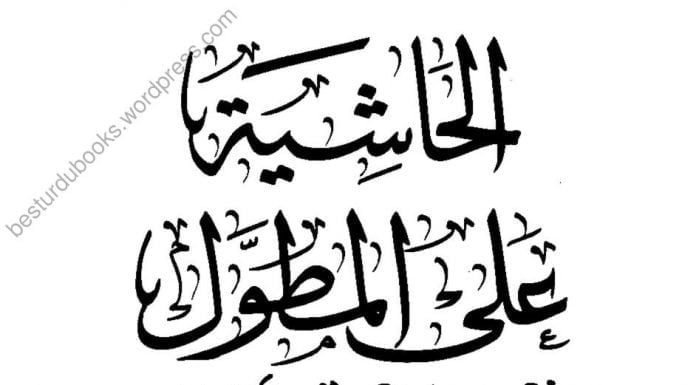 besturdubooks.wordpress.com
الحَاشِيَة
عَلى المُطَوَّل